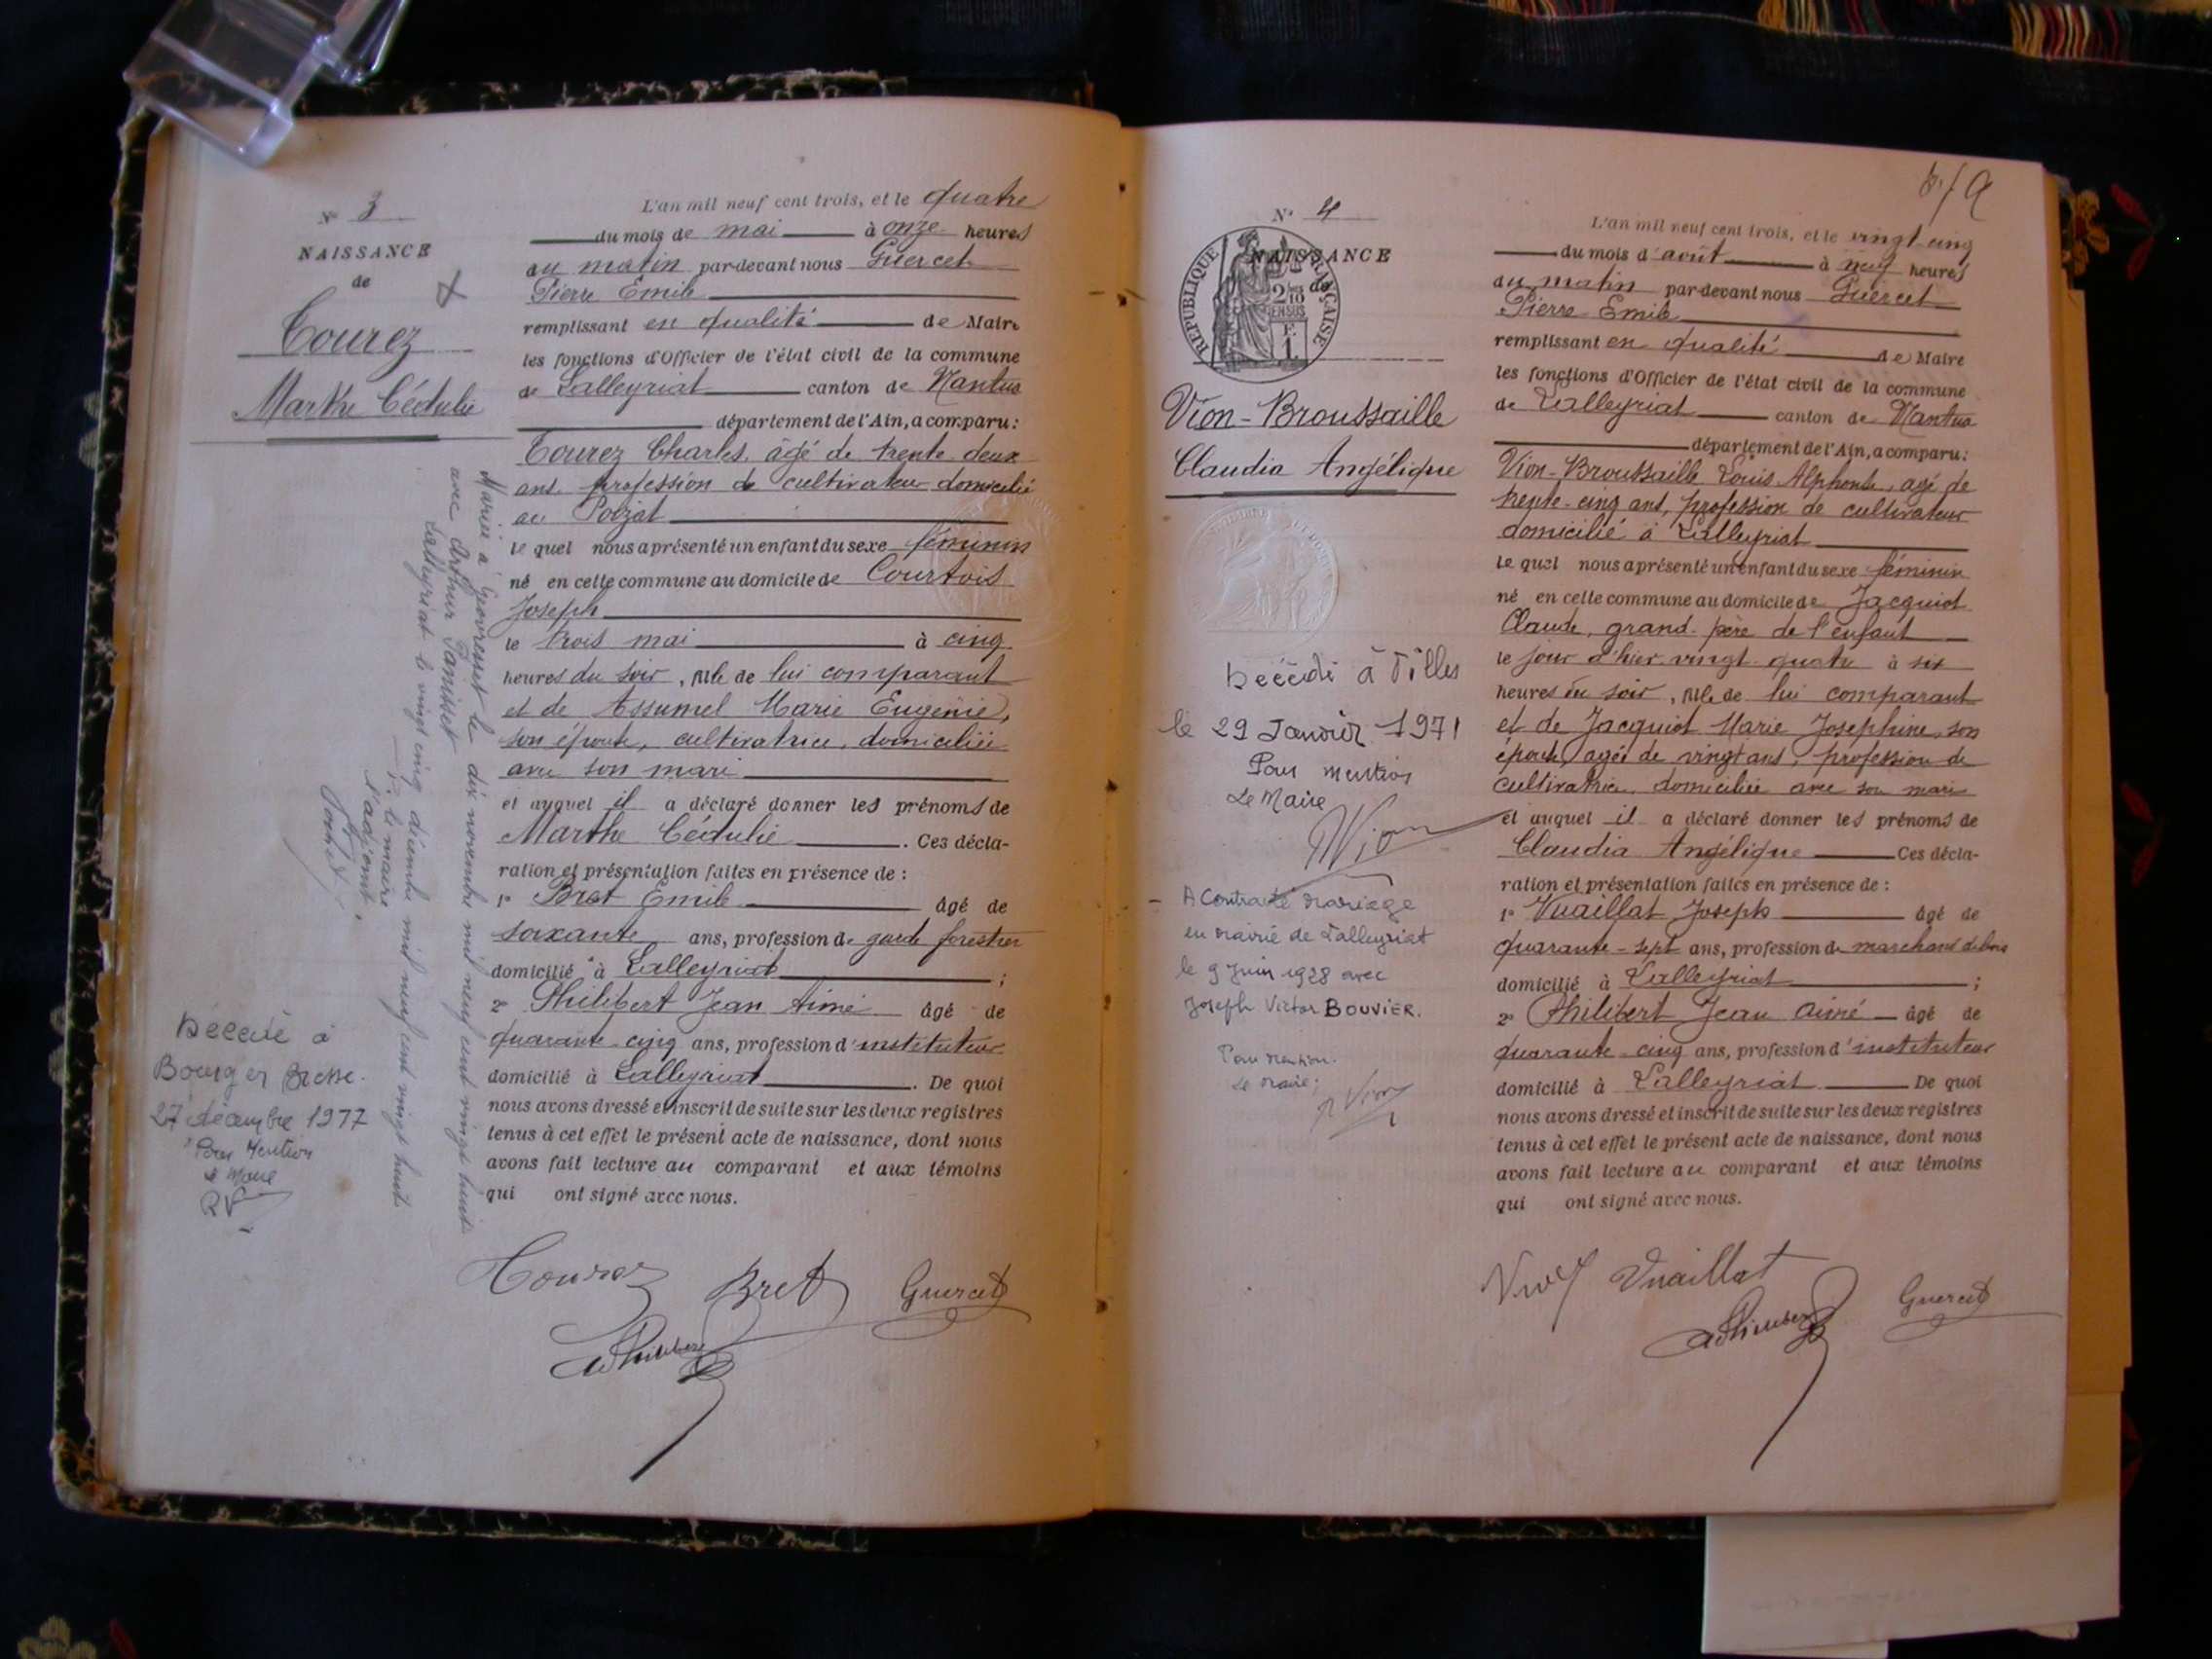 Nº 3
NAISSANCE
de
Tourez
Marthe Cédulie
L'an mil neuf cent trois, et le quatre
du mois de mai à onze heures
du matin par-devant nous Guercet
Pierre Emile
remplissant en qualité de Maire
les fonctions d'Officier de l'état civil de la commune
de Lalleyriat canton de Nantua
département de l'Ain, a comparu :
Tourez Charles, âgé de trente deux
ans, profession de cultivateur domicilié
au Poizat
le quel nous a présenté un enfant du sexe féminin
né en cette commune au domicile de Courtois
Joseph
le trois mai à cinq
heures du soir, fille de lui comparant
et de Assumel Marie Eugénie,
son épouse, cultivatrice, domiciliée
avec son mari
et auquel il a déclaré donner les prénoms de
Marthe Cédulie. Ces décla-
ration et présentation faites en présence de :
1º Bret Emile âgé de
soixante ans, profession de garde forestier
domicilié à Lalleyriat ;
2º Philibert Jean Aimé âgé de
quarante cinq ans, profession d'instituteur
domicilié à Lalleyriat. De quoi
nous avons dressé et inscrit de suite sur les deux registres
tenus à cet effet le présent acte de naissance, dont nous
avons fait lecture au comparant et aux témoins
qui ont signé avec nous.
Tourez Bret Guercet
Philibert
Mariée à Géovresset le dix novembre mil neuf cent vingt huit
avec Arthur Panisset
Lalleyriat le vingt cinq décembre mil neuf cent vingt huit
le maire
l'adjoint
Décédé à
Bourg en Bresse
27 décembre 1977
Pour Mention
Le Maire
RV
Nº 4
NAISSANCE
de
REPUBLIQUE FRANÇAISE
2/10
EN SUS
F.
1
Vion-Broussaille
Claudia Angélique
Décédé à Tilles
le 29 Janvier 1971
Pour mention
Le Maire
Vion
A Contracté mariage
en mairie de Lalleyriat
le 9 Juin 1928 avec
Joseph Victor BOUVIER.
Pour mention.
Le Maire :
Vion
L'an mil neuf cent trois, et le vingt cinq
du mois d'août à neuf heures
du matin par-devant nous Guercet
Pierre Emile
remplissant en qualité de Maire
les fonctions d'Officier de l'état civil de la commune
de Lalleyriat canton de Nantua
département de l'Ain, a comparu :
Vion-Broussaille Louis Alphonse, agé de
trente-cinq ans, profession de cultivateur
domicilié à Lalleyriat
le quel nous a présenté un enfant du sexe féminin
né en cette commune au domicile de Jacquiot
Claude, grand-père de l'enfant
le jour d'hier vingt quatre à six
heures du soir, fille de lui comparant
et de Jacquiot Marie Josephine, son
épouse, agée de vingt ans, profession de
cultivatrice, domiciliée avec son mari
et auquel il a déclaré donner les prénoms de
Claudia Angélique Ces décla-
ration et présentation faites en présence de :
1º Vuaillat Joseph âgé de
quarante-sept ans, profession de marchand de bois
domicilié à Lalleyriat ;
2º Philibert Jean Aimé âgé de
quarante cinq ans, profession d'instituteur
domicilié à Lalleyriat De quoi
nous avons dressé et inscrit de suite sur les deux registres
tenus à cet effet le présent acte de naissance, dont nous
avons fait lecture au comparant et aux témoins
qui ont signé avec nous.
Vion Vuaillat Guercet
Philibert